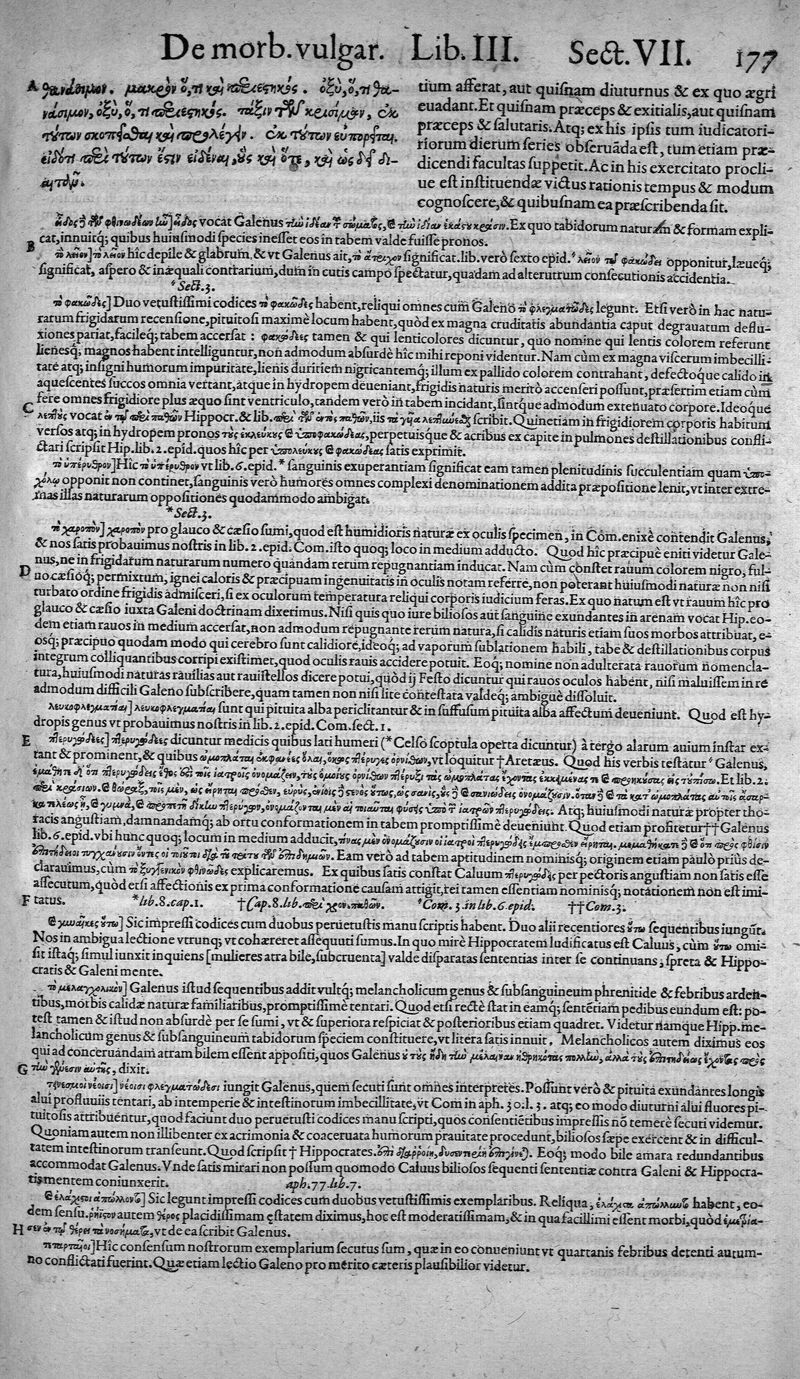 De morb. vulgar. Lib. III. Sect. VII. 177
A θανάσιμον. μακρὸν ὅ, τι καὶ περιεστηκός. ὀξὺ, ὅ, τι θα-
νάσιμον, ὀξὺ, ὅ, τι περιεστηκός. τάξιν τῶν κρισίμων, ἐκ
τούτων σκοπεῖσθαι καὶ προλέγειν. ἐκ τούτων εὐπορεῖται.
εἰδότι περὶ τούτων ἔστιν εἰδέναι, οὓς καὶ ὅτε, καὶ ὡς δεῖ δι-
αιτᾶν.
tium afferat, aut quisnam diuturnus & ex quo ægri
euadant. Et quisnam præceps & exitialis, aut quisnam
præceps & salutaris. Atq; ex his ipsis tum iudicatori-
riorum dierum series obseruãda est, tum etiam præ-
dicendi facultas suppetit. Ac in his exercitato procli-
ue est instituendæ victus rationis tempus & modum
cognoscere, & quibusnam ea præscribenda sit.
vocat Galenus Ex quo tabidorum naturam & formam expli-
B cat, innuitq; quibus huiusmodi species inesset eos in tabem valde fuisse pronos.
τὸ λεῖον] τὸ λεῖον hîc depile & glabrum, & vt Galenus ait, τὸ ἄτριχον significat. lib. verò sexto epid. * λεῖον τῷ φακώδει opponitur, Læucq;
significat, aspero & inæquali contrarium, dum in cutis campo spectatur, quadam ad alterutrum consecutionis accidentia.
*Sect. 3.
τὸ φακῶδες] Duo vetustissimi codices τὸ φακῶδες habent, reliqui omnes cum Galeno τὸ φλεγματῶδες legunt. Etsi verò in hac natu-
rarum frigidarum recensione, pituitosi maximè locum habent, quòd ex magna cruditatis abundantia caput degrauatum deflu-
xiones pariat, facileq; tabem accersat: φακώδεες tamen & qui lenticolores dicuntur, quo nomine qui lentis colorem referunt
lienesq; magnos habent intelliguntur, non admodum absurdè hîc mihi reponi videntur. Nam cùm ex magna viscerum imbecilli-
tate atq; insigni humorum impuritate, lienis duritiem nigricantemq; illum ex pallido colorem contrahant, defectoque calido in
aquescentes succos omnia vertant, atque in hydropem deueniant, frigidis naturis meritò accenseri possunt, præsertim etiam cùm
C fere omnes frigidiore plus æquo sint ventriculo, tandem verò in tabem incidant, sintque admodum extenuato corpore. Ideoque
vocat Hippocr. & lib. iis scribit. Quinetiam in frigidiorem corporis habitum
versos atq; in hydropem pronos perpetuisque & acribus ex capite in pulmones destillationibus confli-
ctari scripsit Hip. lib. 2. epid. quos hîc per ὑπολεύκους & φακώδεας satis exprimit.
τὸ ὑπέρυθρον] Hîc τὸ ὑπέρυθρον vt lib. 6. epid. * sanguinis exuperantiam significat eam tamen plenitudinis succulentiam quam ὑπο-
χόλῳ opponit non continet, sanguinis verò humores omnes complexi denominationem addita præpositione lenit, vt inter extre-
mas illas naturarum oppositiones quodammodo ambigat.
*Sect. 3.
τὸ χαροπὸν] χαροπὸν pro glauco & cæsio sumi, quod est humidioris naturæ ex oculis specimen, in Cõm. enixè contendit Galenus,
& nos satis probauimus nostris in lib. 2. epid. Com. isto quoq; loco in medium adducto. Quod hîc præcipuè eniti videtur Gale-
nus, ne in frigidarum naturarum numero quandam rerum repugnantiam inducat. Nam cùm constet rauum colorem nigro, ful-
D uo cæsioq; permixtum, ignei caloris & præcipuam ingenuitatis in oculis notam referre, non poterant huiusmodi naturæ non nisi
turbato ordine frigidis admisceri, si ex oculorum temperatura reliqui corporis iudicium feras. Ex quo natum est vt rauum hîc pro
glauco & cæsio iuxta Galeni doctrinam dixerimus. Nisi quis quo iure biliosos aut sanguine exundantes in arenam vocat Hip. eo-
dem etiam rauos in medium accersat, non admodum repugnante rerum natura, si calidis naturis etiam suos morbos attribuat, e-
osq; præcipuo quodam modo qui cerebro sunt calidiore, ideoq; ad vaporum sublationem habili, tabe & destillationibus corpus
integrum colliquantibus corripi existimet, quod oculis rauis accidere potuit. Eoq; nomine non adulterata rauorum nomencla-
tura, huiusmodi naturas rauilias aut rauistellos dicere potui, quòd ij Festo dicuntur qui rauos oculos habent, nisi maluissem in re
admodum difficili Galeno subscribere, quam tamen non nisi lite contestata valdeq; ambiguè dissoluit.
λευκοφλεγματίαι] λευκοφλεγματίαι sunt qui pituita alba periclitantur & in suffusum pituita alba affectum deueniunt. Quod est hy-
dropis genus vt probauimus nostris in lib. 2. epid. Com. sect. 1.
E πτερυγώδεες] πτερυγώδεες dicuntur medicis quibus lati humeri (* Celso scoptula operta dicuntur) à tergo alarum auium instar ex-
tant & prominent, & quibus vt loquitur † Aretæus. Quod his verbis testatur * Galenus,
Et lib. 2.
Atq; huiusmodi naturæ propter tho-
racis angustiam, damnandamq; ab ortu conformationem in tabem promptissimè deueniunt. Quod etiam profitetur †† Galenus
lib. 6. epid. vbi hunc quoq; locum in medium adducit,
Eam verò ad tabem aptitudinem nominisq; originem etiam paulò priùs de-
clarauimus, cùm explicaremus. Ex quibus satis constat Caluum πτερυγώδης per pectoris angustiam non satis esse
assecutum, quòd etsi affectionis ex prima conformatione causam attigit, rei tamen essentiam nominisq; notationem non est imi-
F tatus. *lib. 8. cap. 1. †Cap. 8. lib. περὶ χρον. παθῶν. *Com. 3. in lib. 6. epid. ††Com. 3.
& γυναῖκες οὕτω] Sic impressi codices cum duobus peruetustis manu scriptis habent. Duo alij recentiores οὕτω sequentibus iungũt.
Nos in ambigua lectione vtrunq; vt cohæreret assequuti sumus. In quo mirè Hippocratem ludificatus est Caluus, cùm οὕτω omi-
sit istaq; simul iunxit inquiens [mulieres atra bile, subcruenta] valde disparatas sententias inter se continuans, spreta & Hippo-
cratis & Galeni mente.
τὸ μελαγχολικὸν] Galenus istud sequentibus addit vultq; melancholicum genus & subsanguineum phrenitide & febribus arden-
tibus, morbis calidæ naturæ familiaribus, promptissimè tentari. Quod etsi rectè stat in eamq; sentẽtiam pedibus eundum est: po-
test tamen & istud non absurdè per se sumi, vt & superiora respiciat & posterioribus etiam quadret. Videtur namque Hipp. me-
lancholicum genus & subsanguineum tabidorum speciem constituere, vt litera satis innuit. Melancholicos autem diximus eos
qui ad coaceruandam atram bilem essent appositi, quos Galenus
G dixit.
] iungit Galenus, quem secuti sunt omnes interpretes. Possunt verò & pituita exundantes longis
alui profluuiis tentari, ab intemperie & intestinorum imbecillitate, vt Com in aph. 30. l. 3. atq; eo modo diuturni alui fluores pi-
tuitosis attribuentur, quod faciunt duo peruetusti codices manu scripti, quos consentiẽtibus impressis nõ temerè secuti videmur.
Quoniam autem non illibenter ex acrimonia & coaceruata humorum prauitate procedunt, biliosos sæpe exercent & in difficul-
tatem intestinorum transeunt. Quod scripsit † Hippocrates. Eoq; modo bile amara redundantibus
accommodat Galenus. Vnde satis mirari non possum quomodo Caluus biliosos sequenti sententiæ contra Galeni & Hippocra-
tis mentem coniunxerit. aph. 77. lib. 7.
& ἐλάχιστοι ἀπώλλοντο] Sic legunt impressi codices cum duobus vetustissimis exemplaribus. Reliqua, habent, eo-
dem sensu. autem θέρος placidissimam ęstatem diximus, hoc est moderatissimam, & in qua facillimi essent morbi, quòd
H vt de ea scribit Galenus.
τεταρταῖοι] Hîc consensum nostrorum exemplarium secutus sum, quæ in eo conueniunt vt quartanis febribus detenti autum-
no conflictati fuerint. Quæ etiam lectio Galeno pro merito cæteris plausibilior videtur.